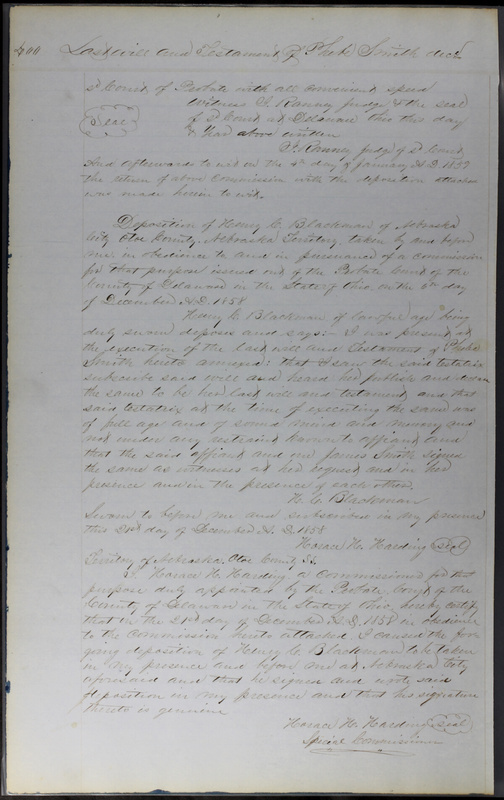 400 Last Will and Testament of Pheb Smith decd
sd Court of Probate with all convenient speed
Witness T. Ranney judge & the seal
Seal of sd Court at Delaware this this day
& Year above written
T. Ranney judge of sd Court
And afterwards to wit on the 4th day of January A.D. 1859
the return of above Commission with the deposition attached
was made herein to wit.
Deposition of Henry C. Blackman of Nebraska
City Otoe County, Nebraska Territory taken by and before
me in obedience to and in pursuance of a commission
for that purpose issued out of the Probate Court of the
County of Delaware in the State of Ohio on the 6th day
of December A.D. 1858
Henry C. Blackman of lawful age being
duly sworn deposes and says:- I was present at
the execution of the last will and Testament of Phebe
Smith hereto annexed: that I saw the said testatrix
subscribe said will and heard her publish and declare
the same to be her last will and testament and that
said testatrix at the time of executing the same was
of full age and of sound mind and memory and
not under any restraint known to affiant and
that the said affiant and one James Smith signed
the same as witnesses at her request and in her
presence and in the presence of each other.
H. C. Blackman
Sworn to before me and subscribed in my presence
this 21st day of December A.D. 1858
Horace H. Harding Seal
Territory of Nebraska, Otoe County SS.
I, Horace H. Harding a Commissioner for that
purpose duly appointed by the Probate Court of the
County of Delaware in the State of Ohio, hereby certify
that on the 21st day of December A.D. 1858 in obedience
to the Commission hereto attached, I caused the fore
going deposition of Henry C. Blackman to be taken
in my presence and before me at Nebraska City
aforesaid and that he signed and said
deposition in my presence and that his signature
thereto is genuine
Horace H. Harding seal
Special Commissioner